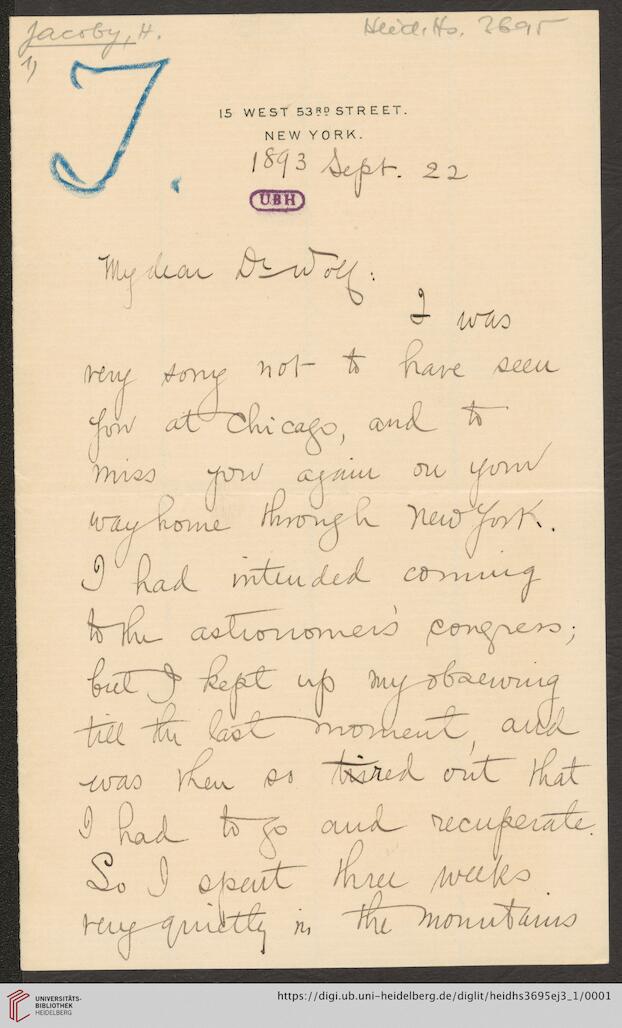 Jacoby, H.
Heid. Hs. 3695
1)
J.
15 WEST 53RD STREET.
NEW YORK.
1893 Sept. 22
UBH
My dear Dr Wolf:
I was
very sorry not to have seen
you at Chicago, and to
miss you again on your
way home through New York.
I had intended coming
to the astronomers' congress;
but I kept up my observing
till the last moment, and
was then so tired out that
I had to go and recuperate.
So I spent three weeks
very quietly in the mountains
UNIVERSITÄTS-
BIBLIOTHEK
HEIDELBERG
https://digi.ub.uni-heidelberg.de/diglit/heidhs3695ej3_1/0001